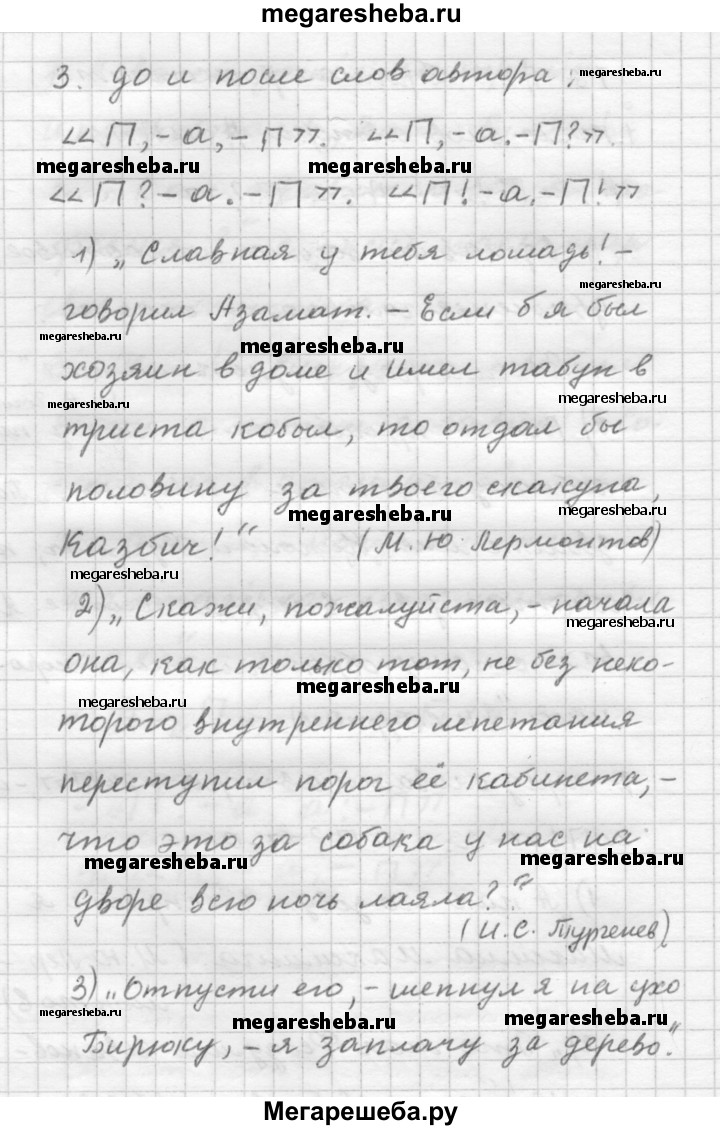 megaresheba.ru
3. до и после слов автора:
megaresheba.ru
«П, - а, - П». «П, - а. - П?».
megaresheba.ru megaresheba.ru
«П? - а. - П». «П! - а. - П!»
1) „Славная у тебя лошадь! -
megaresheba.ru
говорил Азамат. - Если б я был
megaresheba.ru megaresheba.ru
хозяин в доме и имел табун в
megaresheba.ru megaresheba.ru
триста кобыл, то отдал бы
половину за твоего скакуна,
megaresheba.ru megaresheba.ru
Казбич!“ (М. Ю. Лермонтов)
megaresheba.ru
2) „Скажи, пожалуйста, - начала
megaresheba.ru
она, как только тот, не без неко-
megaresheba.ru megaresheba.ru
торого внутреннего лепетания
переступил порог её кабинета, -
что это за собака у нас на
megaresheba.ru megaresheba.ru
дворе всю ночь лаяла?“
(И. С. Тургенев)
3) „Отпусти его, - шепнул я на ухо
megaresheba.ru megaresheba.ru megaresheba.ru
Бирюку, - я заплачу за дерево.“
Мегарешеба.ру